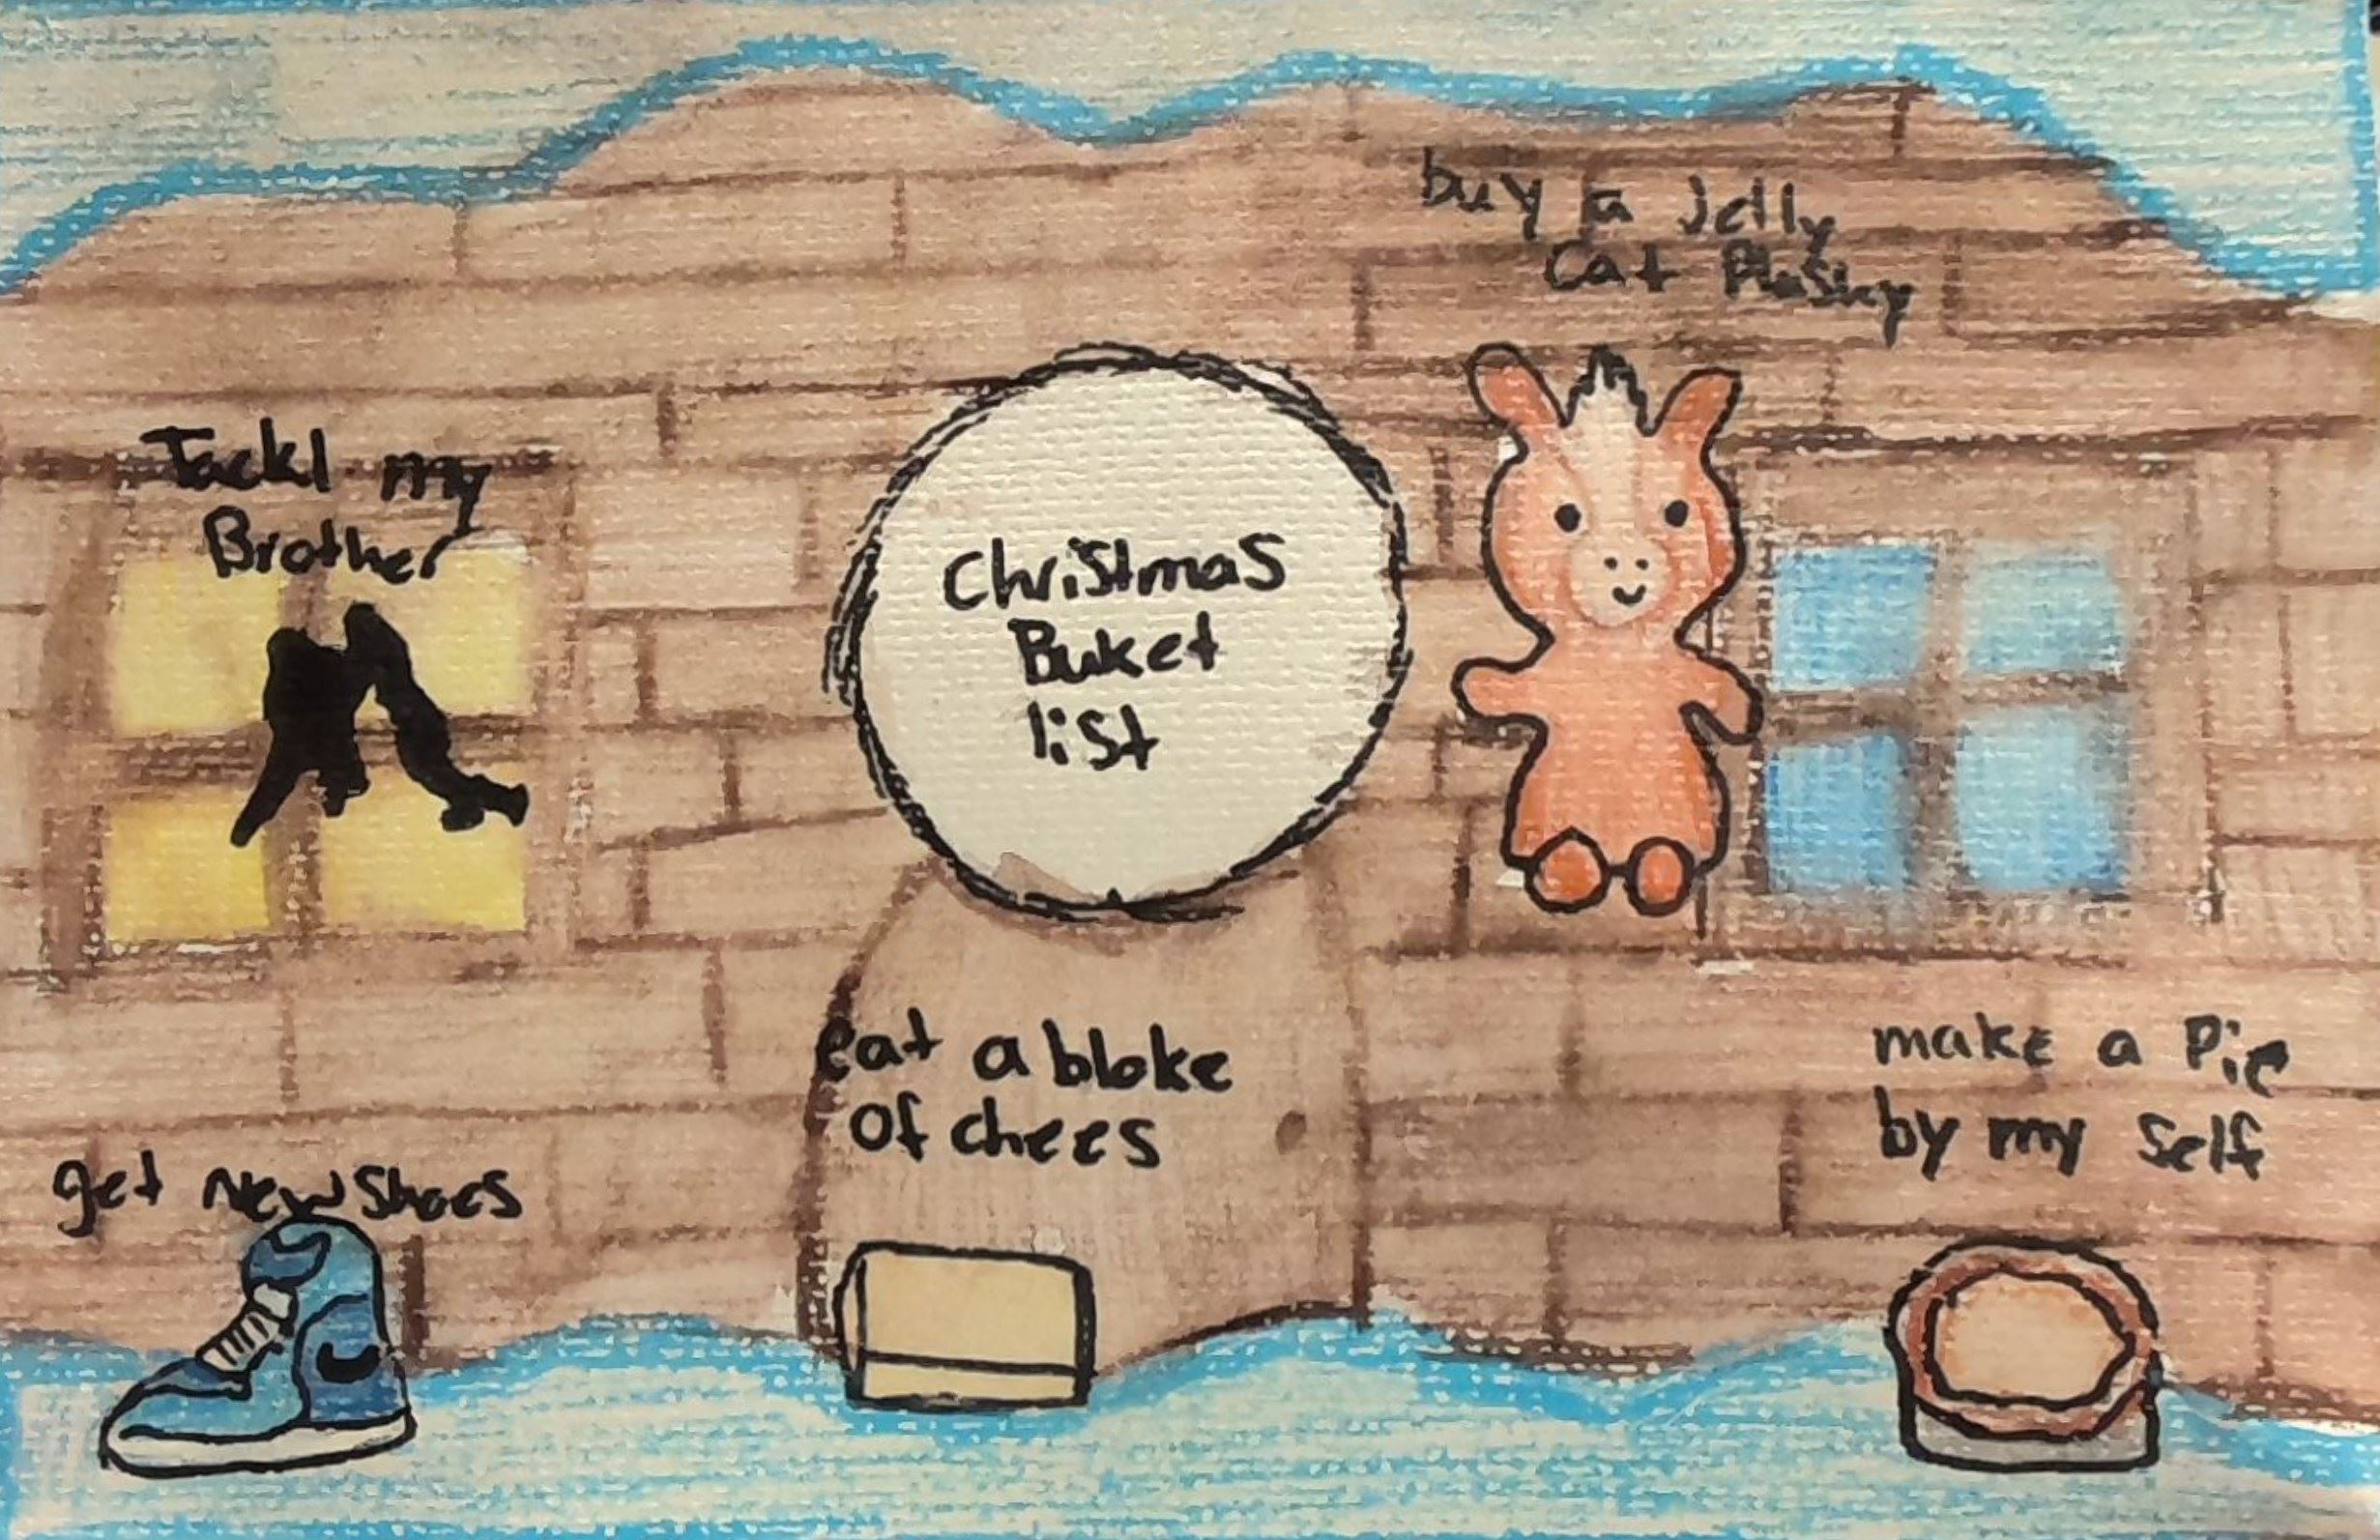 buy a Jelly
Cat Plushy
Tackl my
Brother
Christmas
Buket
list
eat a bloke
of chees
make a Pie
by my Self
get New Shoes